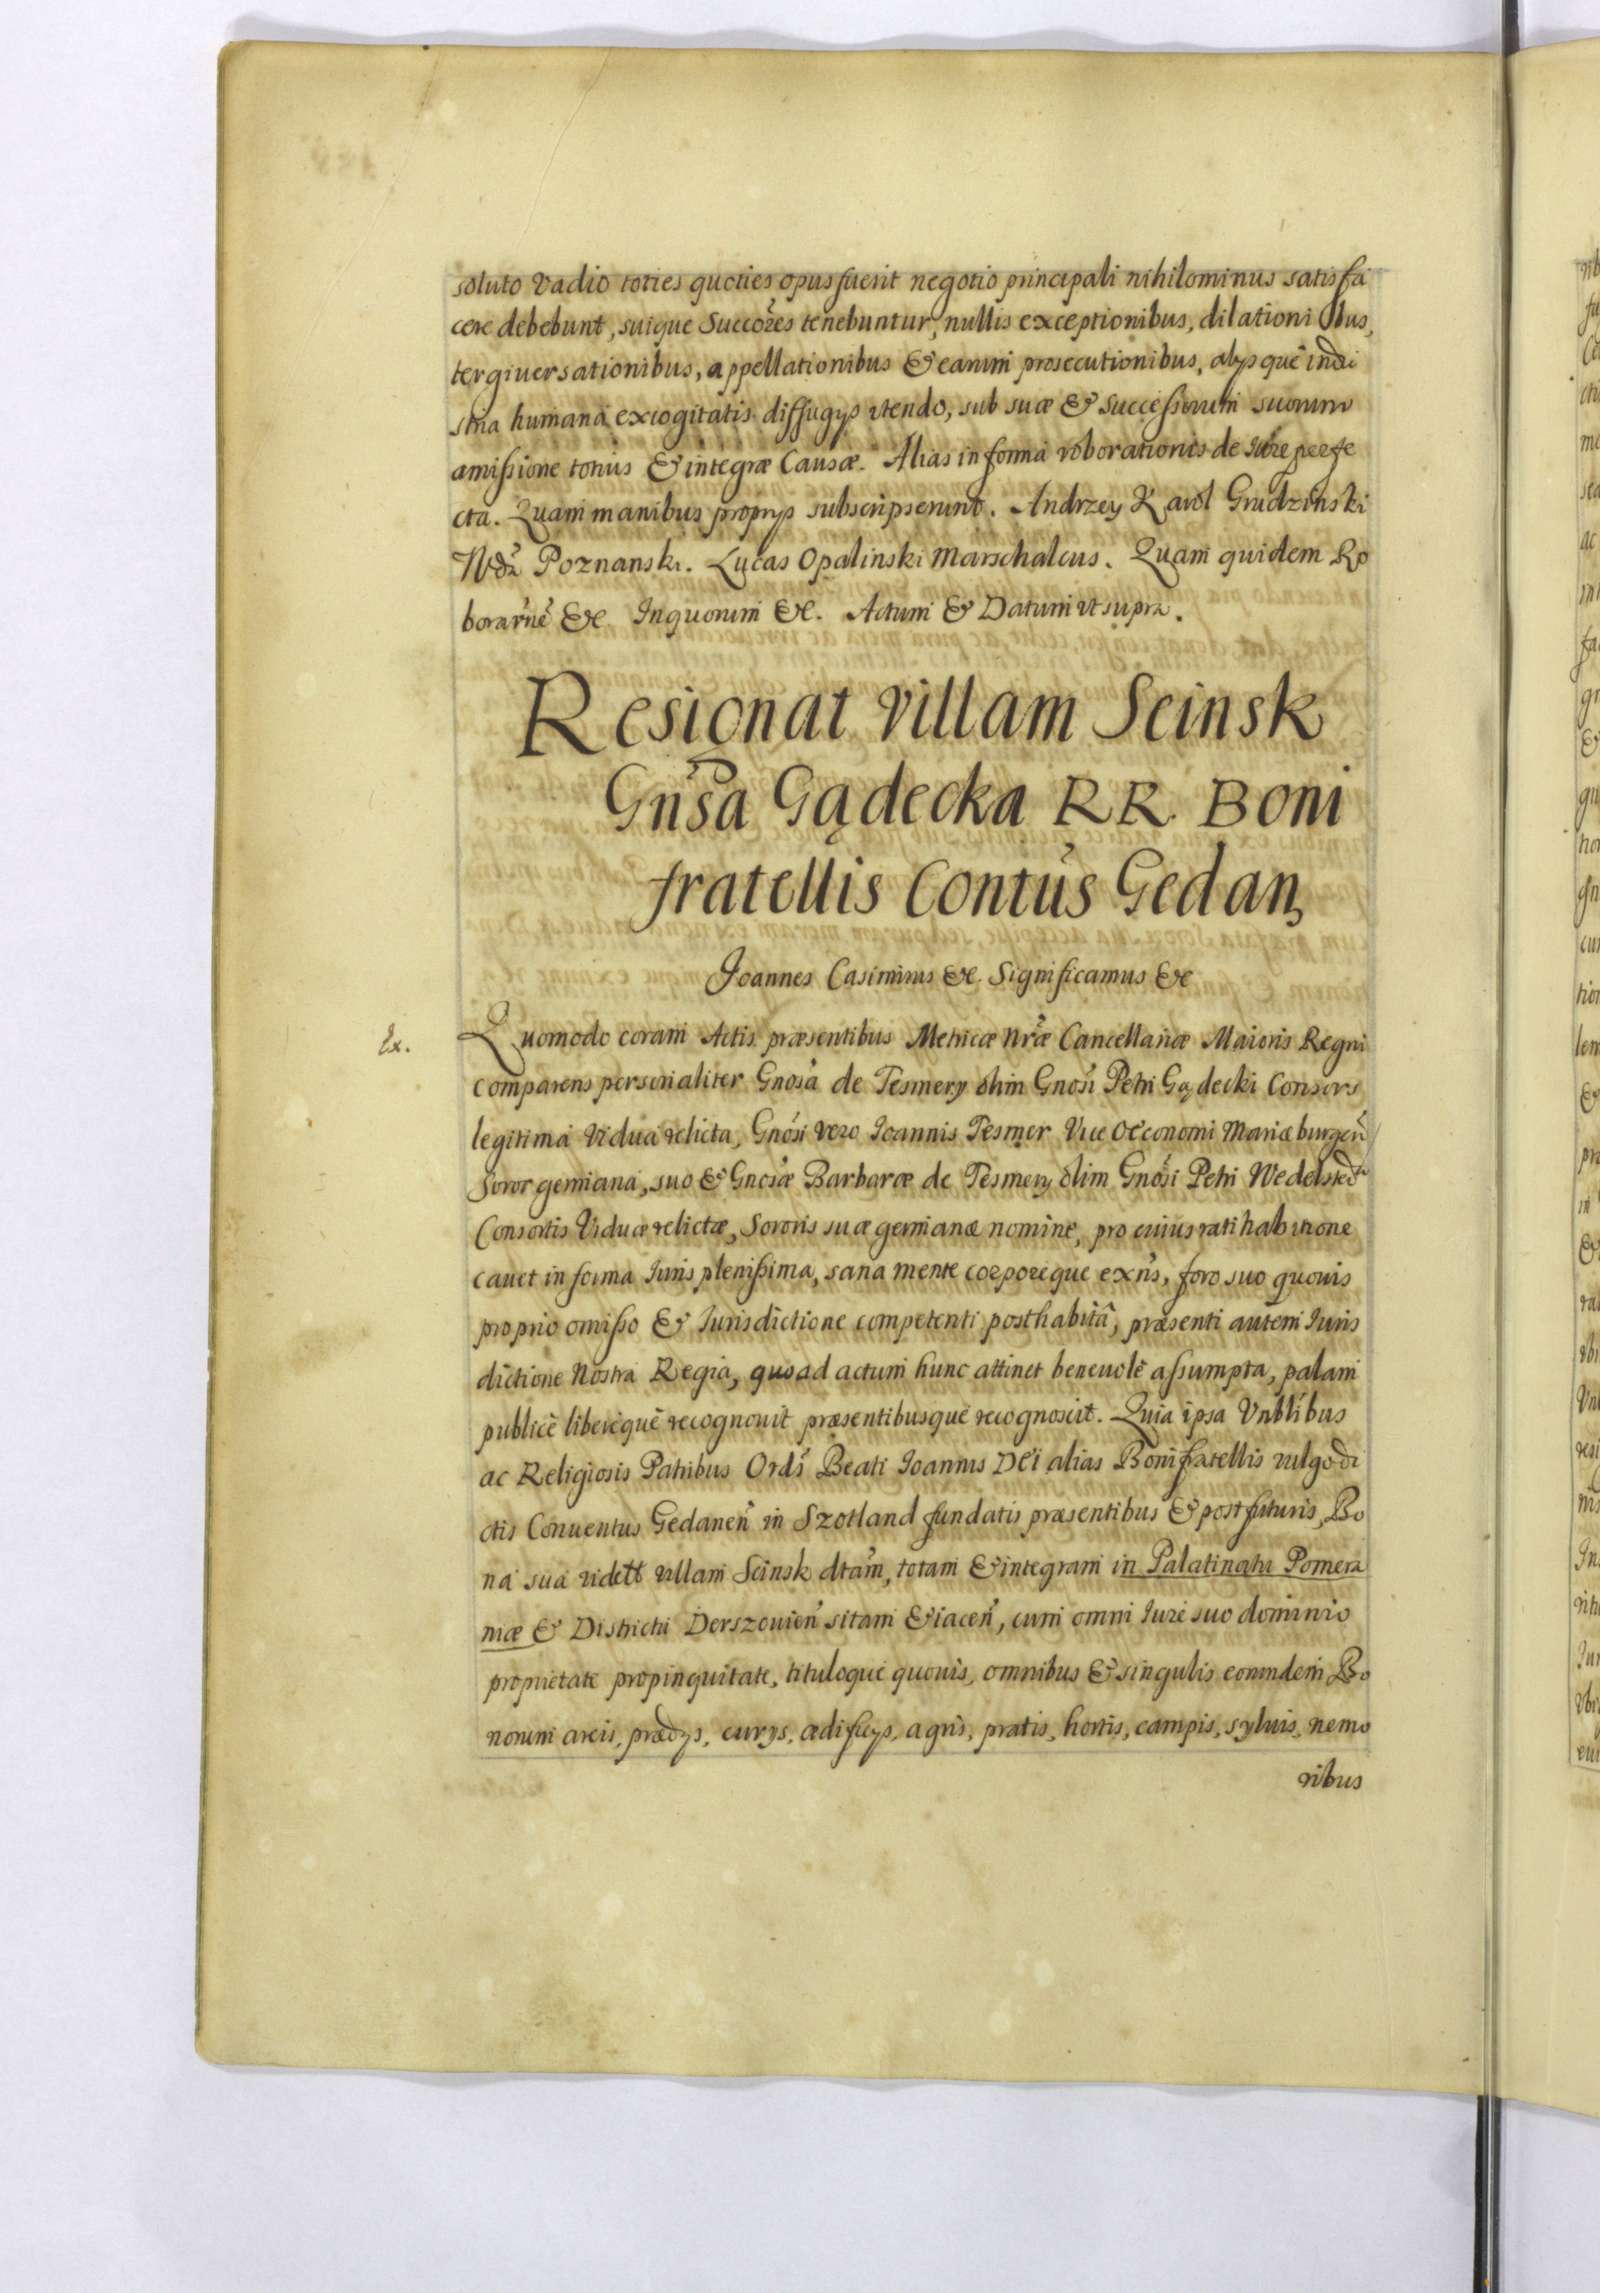 soluto vadio toties quoties opus fuerit negotio principali nihilominus satisfa
cere debebunt, suique Succor̃es tenebuntur, nullis exceptionibus, dilationibus,
tergiuersationibus, appellationibus & earum prosecutionibus, alijsquè indu
stria humana excogitatis diffugijs vtendo, sub suæ & Successorum suorum
amissione totius & integræ Causæ. Alias in forma roborationis de Iure perfe
cta. Quam manibus proprijs subscripserunt. Andrzey Karol Grudzinski
Wdã Poznanski. Lucas Opalinski Marschalcus. Quam quidem Ro
borar̃nẽ &c. In quorum &c. Actum & Datum vt supra.
Resignat villam Scinsk
Gñsa Gądecka RR. Boni
fratellis Contũs Gedan,
Joannes Casimirus &c. Significamus &c
Ex.
Quomodo coram Actis præsentibus Metricæ Nræ̃ Cancellariæ Maioris Regni
comparens personaliter Gnosã de Tesmery olim Gnosĩ Petri Gądecki Consors
legitima vidua relicta, Gnosĩ vero Ioannis Tesmer Vice Oeconomi Mariæburgeñ
Soror germana, suo & Gnosæ̃ Barbaræ de Tesmery olim Gnosĩ Petri Wedelsted
Consortis Viduæ relictæ, Sororis suæ germanæ nomine, pro cuius ratihabitione
cauet in forma Iuris plenissima, sana mente corporeque exñs, foro suo quouis
proprio omisso & Iurisdictione competenti posthabitâ, præsenti autem Iuris
dictione Nostra Regia, quoad actum hunc attinet beneuolè assumpta, palam
publicè liberèquè recognouit præsentibusque recognoscit. Quia ipsa Vnblibus
ac Religiosis Patribus Ords̃ Beati Ioannis DEi alias Bonifratellis vulgo di
ctis Conuentus Gedaneñ in Szotland fundatis præsentibus & post futuris, Bo
na sua vidett villam Scinsk dtam̃, totam & integram in Palatinatu Pomera
niæ & Districtu Derszouieñ sitam & iaceñ, cum omni Iure suo dominio
proprietate propinquitate, tituloque quouis, omnibus & singulis eorundem Bo
norum areis, prædijs, curijs, ædificijs, agris, pratis, hortis, campis, syluis, nemo
ribus